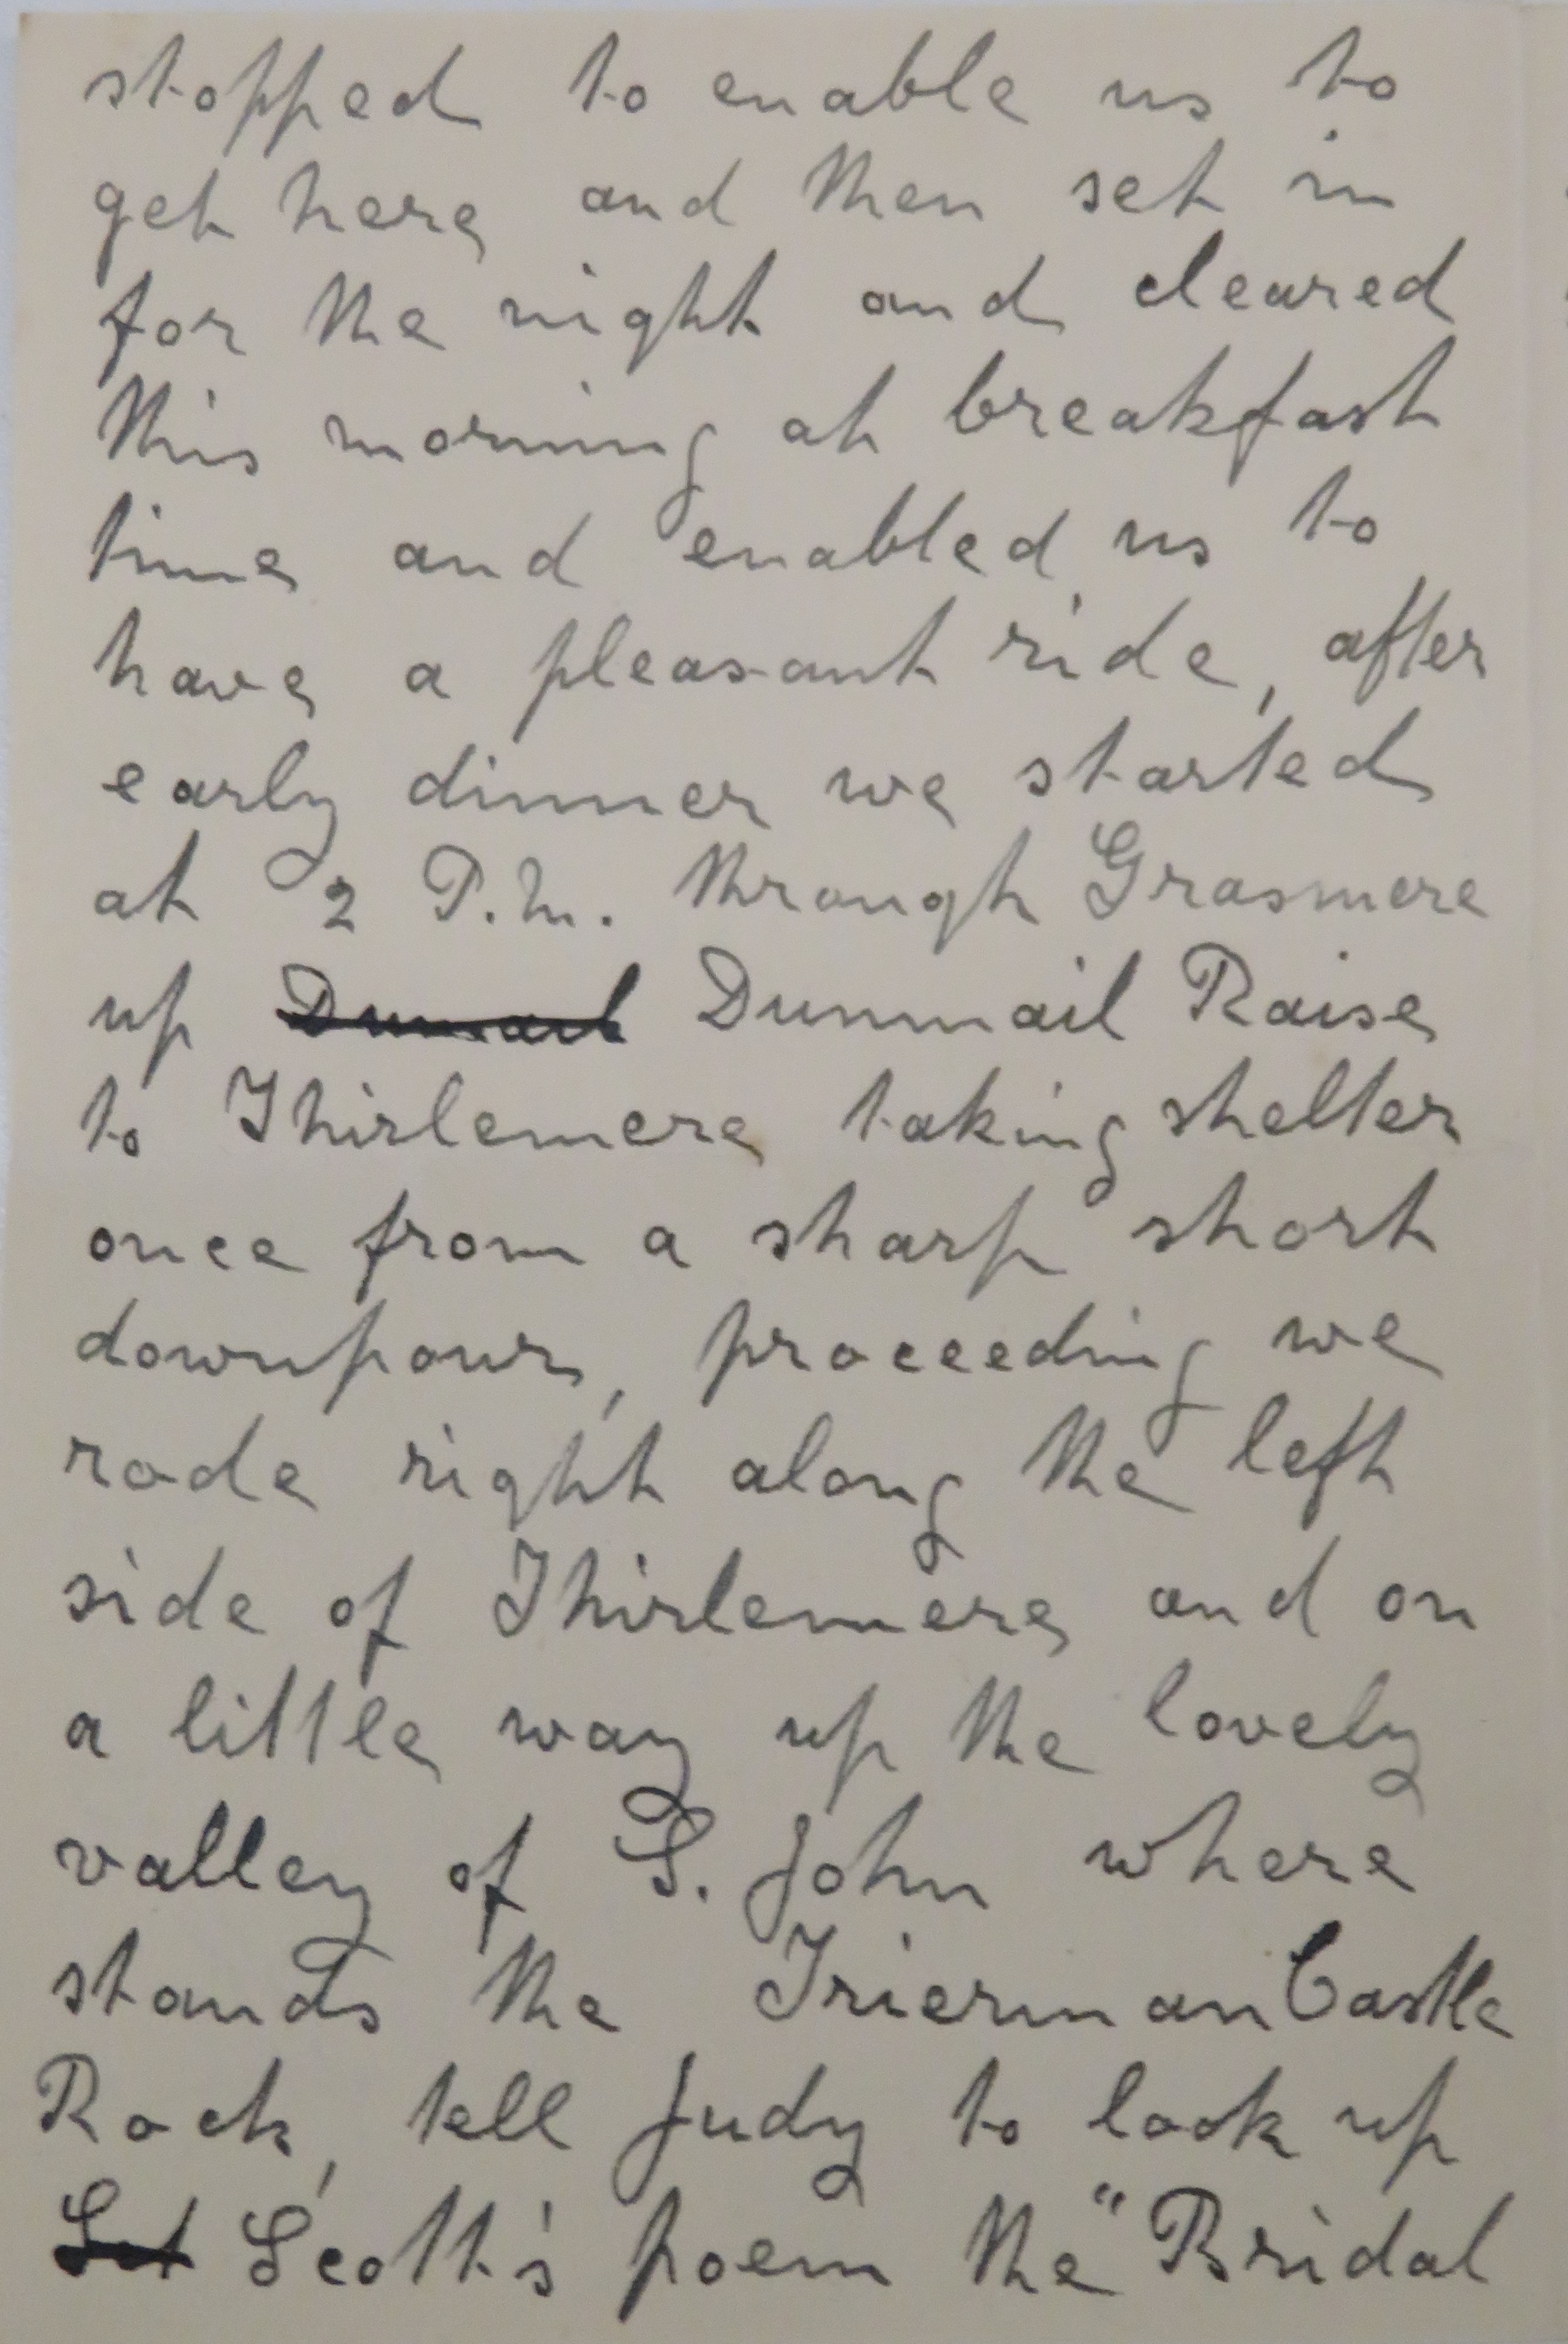 stopped to enable us to
get here and then set in
for the night and cleared
this morning at breakfast
time and enabled us to
have a pleasant ride, after
early dinner we started
at 2 P.m. through Grasmere
up Dunmail Raise
to Thirlemere taking shelter
once from a sharp short
downpour, proceeding we
rode right along the left
side of Thirlemere and on
a little way up the lovely
valley of S. John where
stands the Trierman Castle
Rock, tell Judy to look up
Scott's poem the "Bridal